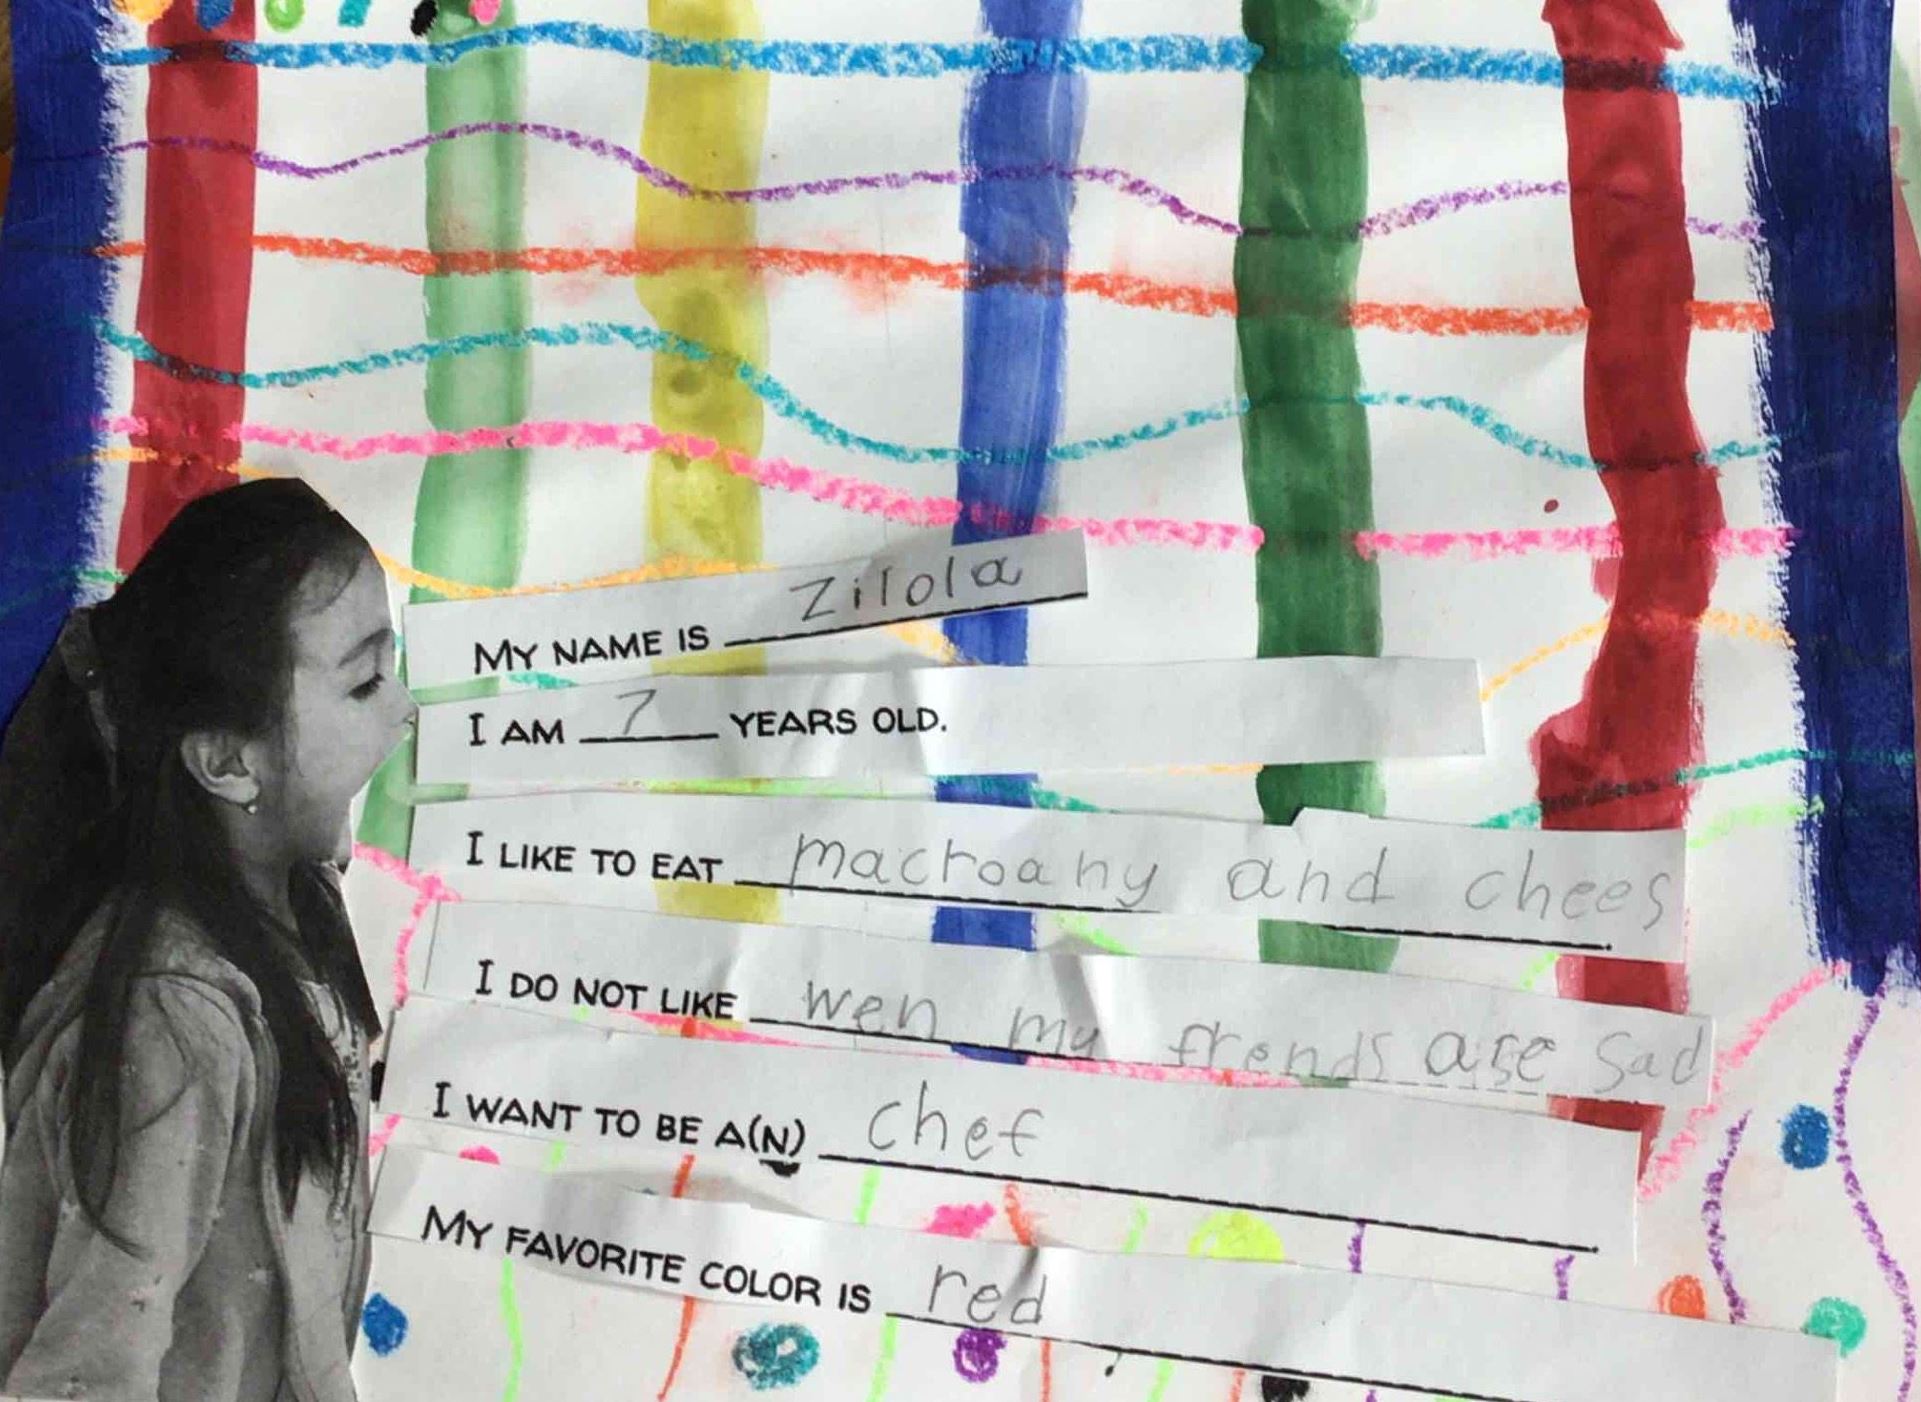 MY NAME IS Zilola
I AM 7 YEARS OLD.
I LIKE TO EAT macroany and chees
I DO NOT LIKE wen my frends are sad
I WANT TO BE A(N) chef
MY FAVORITE COLOR IS red